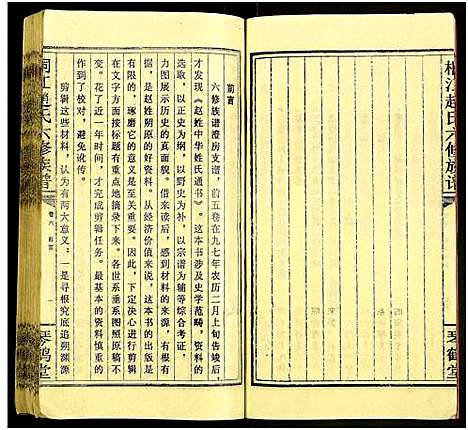 桐江赵氏六修族谱
琴鹤堂
前言
六修族谱澄房支谱，前五卷在九七年农历二月上旬告竣后，
才发现《赵姓中华姓氏通书》。这本书涉及史学范畴，资料的
选取，以正史为纲，以野史为补，以宗谱为辅等综合考证，
力图展示历史的真面貌。借来读后，感到材料的来源，有根有
据，是赵姓朔原的好资料。从经济价值来说，这本书的出版是
有限的，琢磨它的意义是至关重要。因此，下定决心进行剪辑
在文字方面是根据标题有重点地摘录下来。各世系垂系图照原稿不
变。花了近一年时间，才完成剪辑任务。最基本的资料慎重的
作到了校对，避免讹传。
剪辑这些材料，认为有两大意义：一是寻根究底追朔渊源
桐江赵氏六修族谱
卷六
前言
一
琴鹤堂